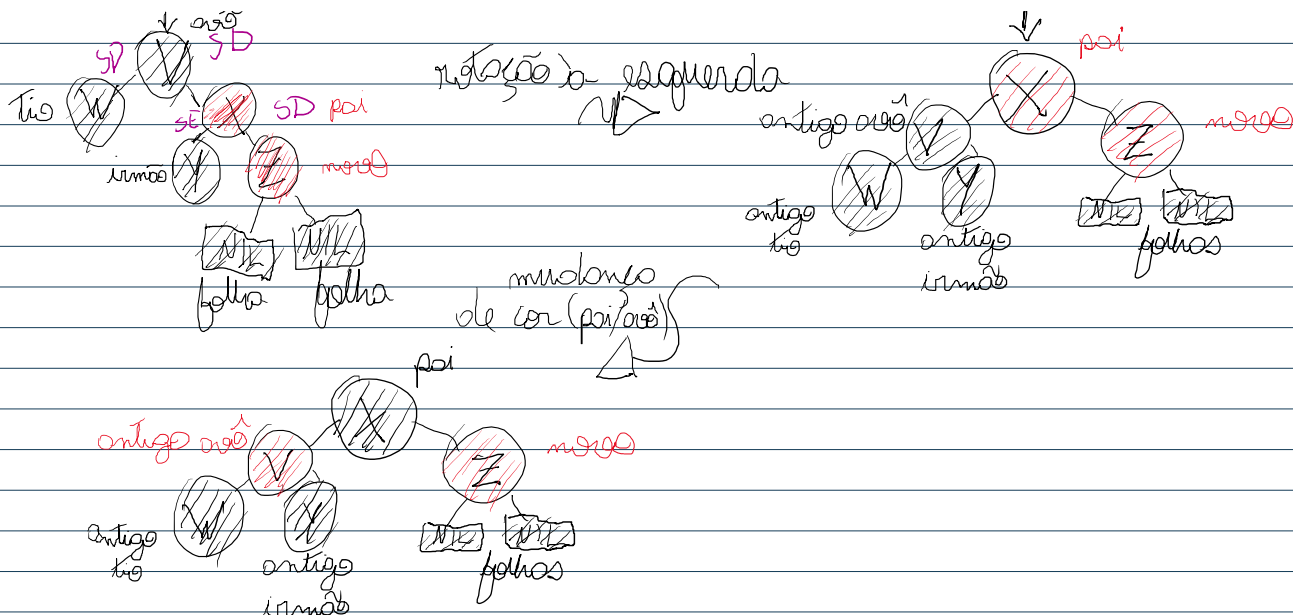 avô
SD V SD
tio W X SD pai
SE
irmão Y Z novo
NIL NIL
folha folha
rotação à esquerda
pai
X
antigo avô V Z novo
W Y NIL NIL
antigo tio
antigo irmão
folhas
mudança
de cor (pai/avô)
pai
X
antigo avô V Z novo
W Y NIL NIL
antigo tio
antigo irmão
folhas